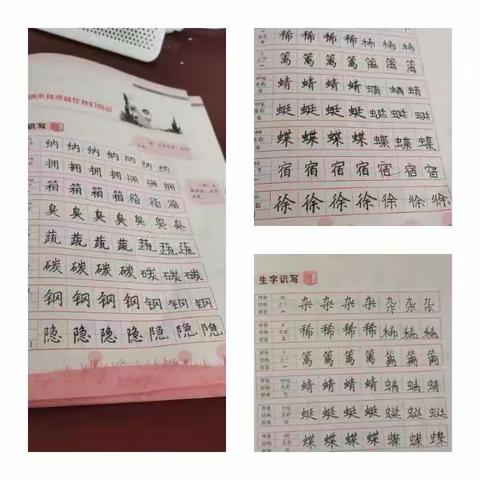 纳米技术就在我们身边
识写
纳 纳 纳 纳 纳 纳 纳
拥 拥 拥 拥 拥 拥 拥
箱 箱 箱 箱 箱 箱 箱
臭 臭 臭 臭 臭 臭 臭
蔬 蔬 蔬 蔬 蔬 蔬 蔬
碳 碳 碳 碳 碳 碳 碳
钢 钢 钢 钢 钢 钢 钢
隐 隐 隐 隐 隐 隐 隐
稀 稀 稀 稀 稀 稀 稀
篱 篱 篱 篱 篱 篱 篱
蜻 蜻 蜻 蜻 蜻 蜻 蜻
蜓 蜓 蜓 蜓 蜓 蜓 蜓
蝶 蝶 蝶 蝶 蝶 蝶 蝶
宿 宿 宿 宿 宿 宿 宿
徐 徐 徐 徐 徐 徐 徐
生字识写
杂 杂 杂 杂 杂 杂
稀 稀 稀 稀 稀 稀
篱 篱 篱 篱 篱 篱
蜻 蜻 蜻 蜻 蜻 蜻 蜻
蜓 蜓 蜓 蜓 蜓 蜓
蝶 蝶 蝶 蝶 蝶 蝶 蝶